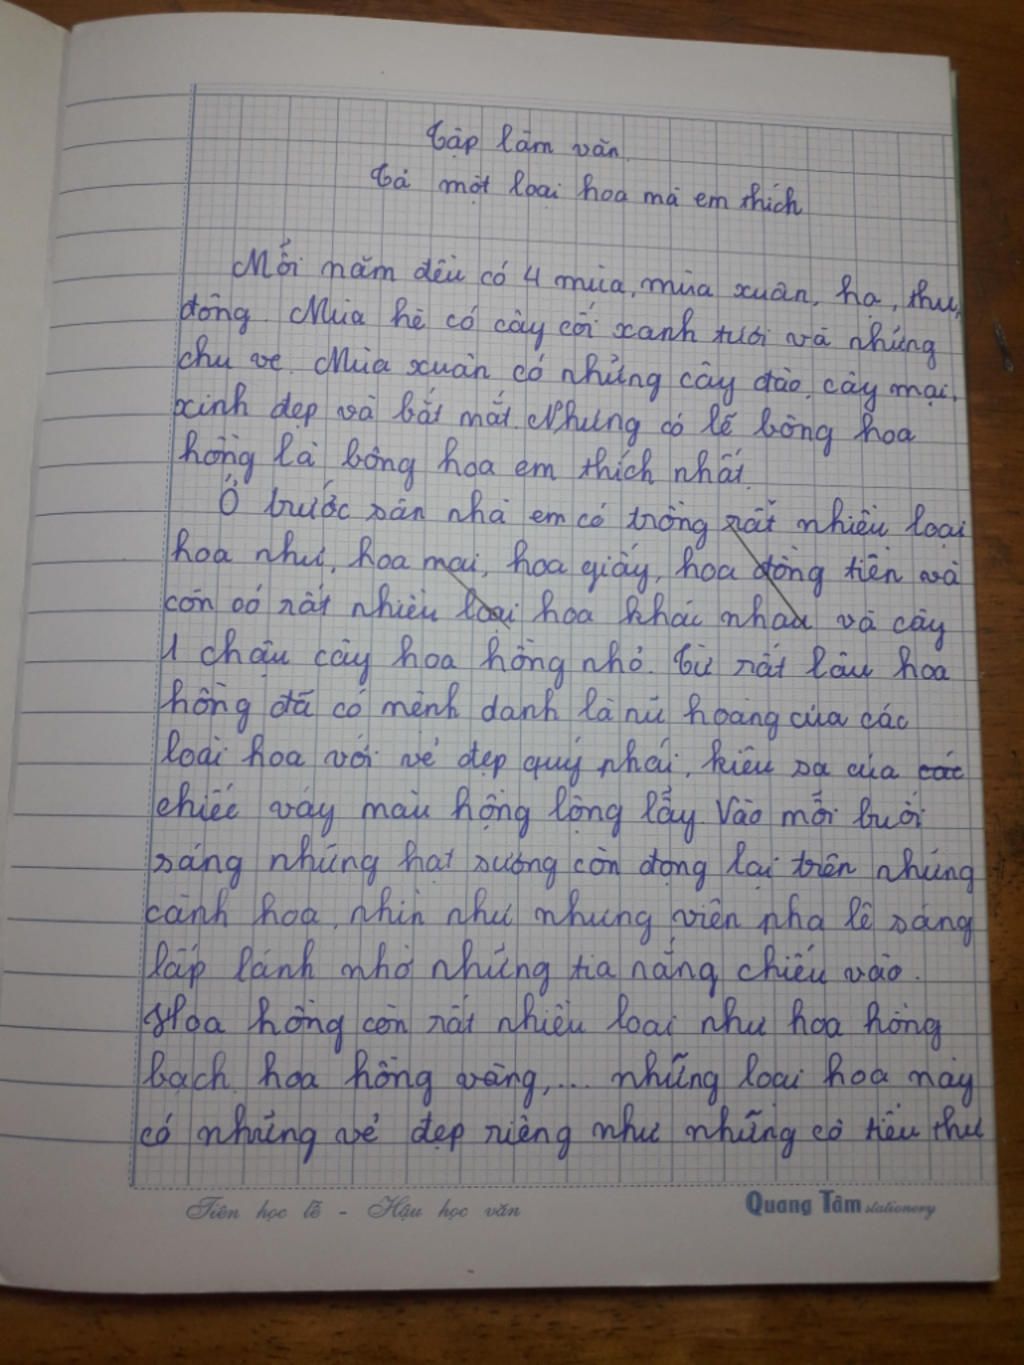 Tập làm văn.
Tả một loại hoa mà em thích
Mỗi năm đều có 4 mùa, mùa xuân, hạ, thu,
đông. Mùa hè có cây cối xanh tươi và những
chu ve. Mùa xuân có những cây đào, cây mại,
xinh đẹp và bắt mắt. Nhưng có lẽ bông hoa
hồng là bông hoa em thích nhất.
Ở trước sân nhà em có trồng rất nhiều loại
hoa như, hoa mai, hoa giấy, hoa đồng tiền và
còn có rất nhiều loại hoa khác nhau và cây
1 chậu cây hoa hồng nhỏ. Từ rất lâu hoa
hồng đã có mệnh danh là nữ hoàng của các
loài hoa với vẻ đẹp quý phái, kiêu sa của các
chiếc váy màu hồng lộng lẫy. Vào mỗi buổi
sáng những hạt sương còn đọng lại trên những
cành hoa, nhìn như nhưng viên pha lê sáng
lấp lánh nhờ những tia nắng chiếu vào.
Hoa hồng còn rất nhiều loại như hoa hồng
bạch, hoa hồng vàng,... những loại hoa này
có những vẻ đẹp riêng như những cô tiểu thư
Tiên học lễ - Hậu học văn
Quang Tâm stationery